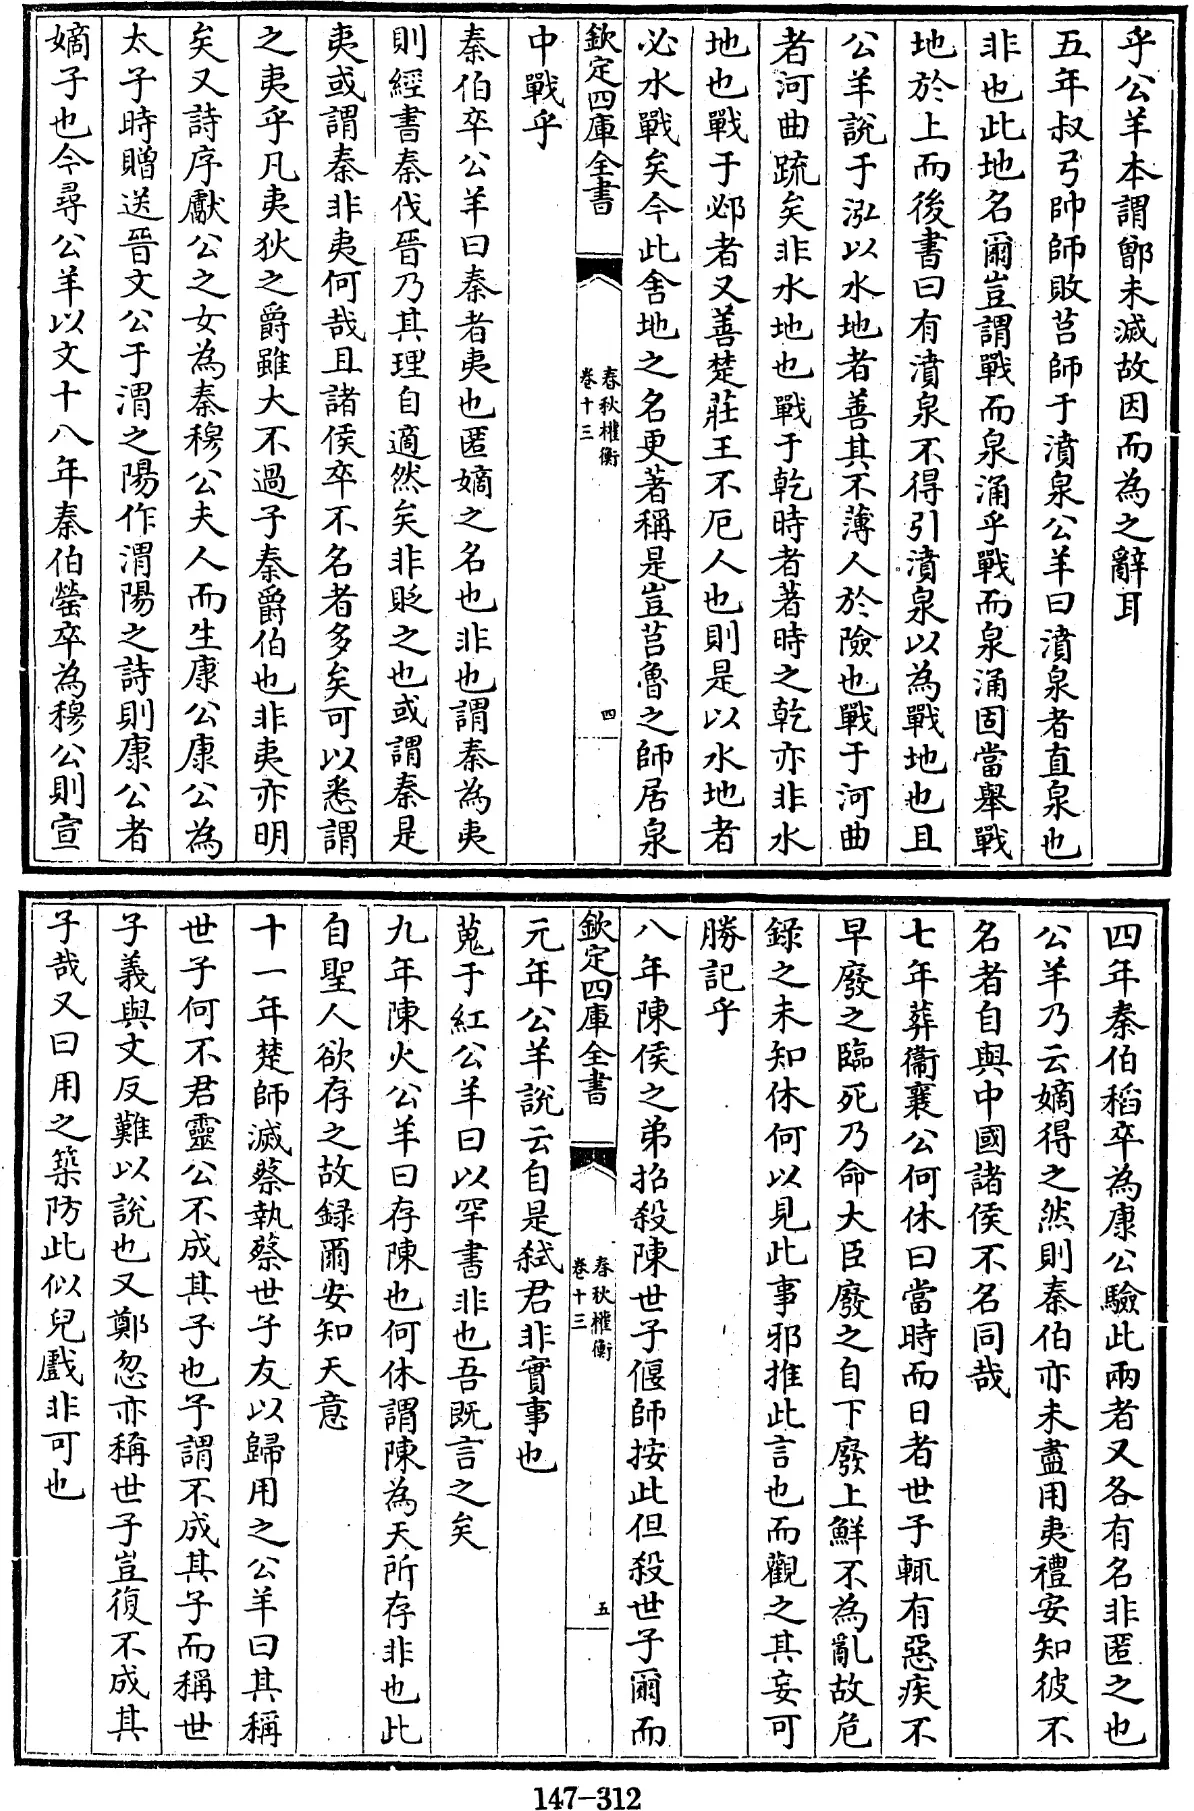 乎公羊本謂鄫未滅故因而為之辭耳
五年叔弓帥師敗莒師于濆泉公羊曰濆泉者直泉也
非也此地名爾豈謂戰而泉涌乎戰而泉涌固當舉戰
地於上而後書曰有濆泉不得引濆泉以為戰地也且
公羊說于泓以水地者善其不薄人於險也戰于河曲
者河曲疏矣非水地也戰于乾時者著時之乾亦非水
地也戰于邲者又善楚莊王不厄人也則是以水地者
必水戰矣今此舍地之名更著稱是豈莒魯之師居泉
中戰乎
欽定四庫全書
春秋權衡
卷十三
四
秦伯卒公羊曰秦者夷也匿嫡之名也非也謂秦為夷
則經書秦伐晉乃其理自適然矣非貶之也或謂秦是
夷或謂秦非夷何哉且諸侯卒不名者多矣可以悉謂
之夷乎凡夷狄之爵雖大不過子秦爵伯也非夷亦明
矣又詩序獻公之女為秦穆公夫人而生康公康公為
太子時贈送晉文公于渭之陽作渭陽之詩則康公者
嫡子也今尋公羊以文十八年秦伯罃卒為穆公則宣
四年秦伯稻卒為康公驗此兩者又各有名非匿之也
公羊乃云嫡得之然則秦伯亦未盡用夷禮安知彼不
名者自與中國諸侯不名同哉
七年葬衞襄公何休曰當時而日者世子輒有惡疾不
早廢之臨死乃命大臣廢之自下廢上鮮不為亂故危
録之未知休何以見此事邪推此言也而觀之其妄可
勝記乎
八年陳侯之弟招殺陳世子偃師按此但殺世子爾而
欽定四庫全書
春秋權衡
卷十三
五
元年公羊說云自是弒君非實事也
蒐于紅公羊曰以罕書非也吾既言之矣
九年陳火公羊曰存陳也何休謂陳為天所存非也此
自聖人欲存之故録爾安知天意
十一年楚師滅蔡執蔡世子友以歸用之公羊曰其稱
世子何不君靈公不成其子也予謂不成其子而稱世
子義與文反難以說也又鄭忽亦稱世子豈復不成其
子哉又曰用之築防此似兒戲非可也
147-312